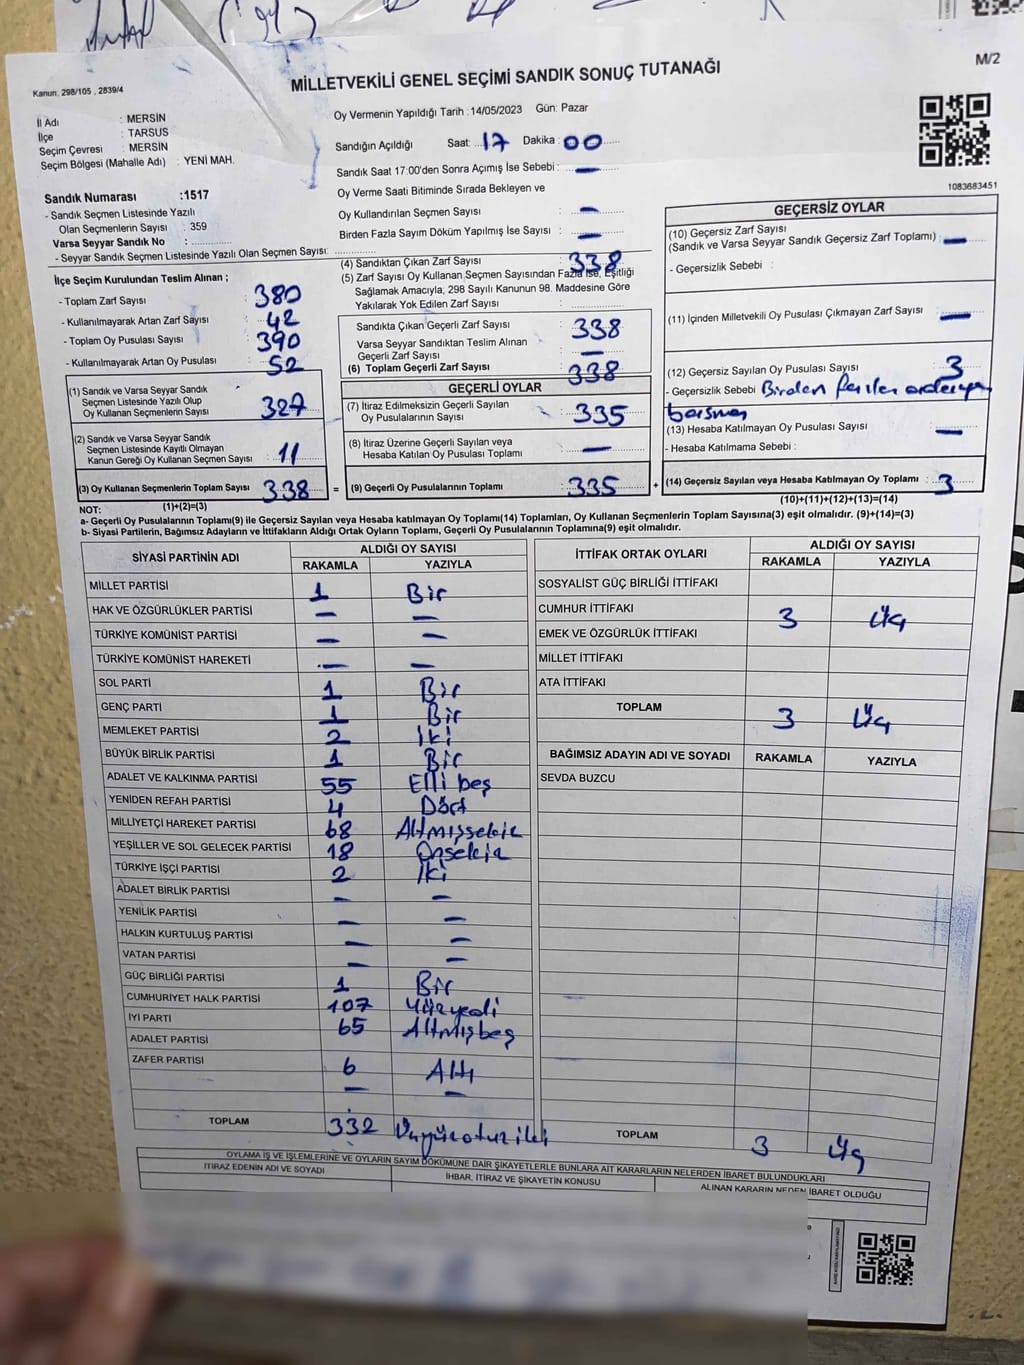 MİLLETVEKİLİ GENEL SEÇİMİ SANDIK SONUÇ TUTANAĞI
M/2
Kanun: 298/105 , 2839/4
İl Adı : MERSİN
İlçe : TARSUS
Seçim Çevresi : MERSİN
Seçim Bölgesi (Mahalle Adı) : YENİ MAH.
Oy Vermenin Yapıldığı Tarih : 14/05/2023 Gün: Pazar
Sandığın Açıldığı Saat: 17 Dakika : 00
Sandık Saat 17:00'den Sonra Açmış İse Sebebi : —
Oy Verme Saati Bitiminde Sırada Bekleyen ve
Oy Kullandırılan Seçmen Sayısı : —
Birden Fazla Sayım Döküm Yapılmış İse Sayısı : —
1083683451
Sandık Numarası :1517
- Sandık Seçmen Listesinde Yazılı
Olan Seçmenlerin Sayısı : 359
Varsa Seyyar Sandık No :
- Seyyar Sandık Seçmen Listesinde Yazılı Olan Seçmen Sayısı:
İlçe Seçim Kurulundan Teslim Alınan ;
- Toplam Zarf Sayısı : 380
- Kullanılmayarak Artan Zarf Sayısı : 42
- Toplam Oy Pusulası Sayısı : 390
- Kullanılmayarak Artan Oy Pusulası : 52
(1) Sandık ve Varsa Seyyar Sandık
Seçmen Listesinde Yazılı Olup
Oy Kullanan Seçmenlerin Sayısı : 327
(2) Sandık ve Varsa Seyyar Sandık
Seçmen Listesinde Kayıtlı Olmayan
Kanun Gereği Oy Kullanan Seçmen Sayısı : 11
(3) Oy Kullanan Seçmenlerin Toplam Sayısı : 338
(1)+(2)=(3)
(4) Sandıktan Çıkan Zarf Sayısı : 338
(5) Zarf Sayısı Oy Kullanan Seçmen Sayısından Fazla İse, Eşitliği
Sağlamak Amacıyla, 298 Sayılı Kanunun 98. Maddesine Göre
Yakılarak Yok Edilen Zarf Sayısı :
Sandıkta Çıkan Geçerli Zarf Sayısı : 338
Varsa Seyyar Sandıktan Teslim Alınan
Geçerli Zarf Sayısı : —
(6) Toplam Geçerli Zarf Sayısı : 338
GEÇERLİ OYLAR
(7) İtiraz Edilmeksizin Geçerli Sayılan
Oy Pusulalarının Sayısı : 335
(8) İtiraz Üzerine Geçerli Sayılan veya
Hesaba Katılan Oy Pusulası Toplamı : —
= (9) Geçerli Oy Pusulalarının Toplamı : 335 +
GEÇERSİZ OYLAR
(10) Geçersiz Zarf Sayısı
(Sandık ve Varsa Seyyar Sandık Geçersiz Zarf Toplamı) : —
- Geçersizlik Sebebi :
(11) İçinden Milletvekili Oy Pusulası Çıkmayan Zarf Sayısı : —
(12) Geçersiz Sayılan Oy Pusulası Sayısı : 3
- Geçersizlik Sebebi : Birden
(13) Hesaba Katılmayan Oy Pusulası Sayısı : —
- Hesaba Katılmama Sebebi :
(14) Geçersiz Sayılan veya Hesaba Katılmayan Oy Toplamı : 3
(10)+(11)+(12)+(13)=(14)
NOT:
a- Geçerli Oy Pusulalarının Toplamı(9) ile Geçersiz Sayılan veya Hesaba katılmayan Oy Toplamı(14) Toplamları, Oy Kullanan Seçmenlerin Toplam Sayısına(3) eşit olmalıdır. (9)+(14)=(3)
b- Siyasi Partilerin, Bağımsız Adayların ve İttifakların Aldığı Ortak Oyların Toplamı, Geçerli Oy Pusulalarının Toplamına(9) eşit olmalıdır.
SİYASİ PARTİNİN ADI ALDIĞI OY SAYISI
RAKAMLA YAZIYLA
MİLLET PARTİSİ 1 Bir
HAK VE ÖZGÜRLÜKLER PARTİSİ — —
TÜRKİYE KOMÜNİST PARTİSİ — —
TÜRKİYE KOMÜNİST HAREKETİ — —
SOL PARTİ 1 Bir
GENÇ PARTİ 1 Bir
MEMLEKET PARTİSİ 2 İki
BÜYÜK BİRLİK PARTİSİ 1 Bir
ADALET VE KALKINMA PARTİSİ 55 Elli beş
YENİDEN REFAH PARTİSİ 4 Dört
MİLLİYETÇİ HAREKET PARTİSİ 68 Altmışsekiz
YEŞİLLER VE SOL GELECEK PARTİSİ 18 Onsekiz
TÜRKİYE İŞÇİ PARTİSİ 2 İki
ADALET BİRLİK PARTİSİ — —
YENİLİK PARTİSİ — —
HALKIN KURTULUŞ PARTİSİ — —
VATAN PARTİSİ — —
GÜÇ BİRLİĞİ PARTİSİ 1 Bir
CUMHURİYET HALK PARTİSİ 107 Yüzyedi
İYİ PARTİ 65 Altmışbeş
ADALET PARTİSİ
ZAFER PARTİSİ 6 Altı
— —
TOPLAM 332 Üçyüzotuziki
İTTİFAK ORTAK OYLARI ALDIĞI OY SAYISI
RAKAMLA YAZIYLA
SOSYALİST GÜÇ BİRLİĞİ İTTİFAKI
CUMHUR İTTİFAKI 3 Üç
EMEK VE ÖZGÜRLÜK İTTİFAKI
MİLLET İTTİFAKI
ATA İTTİFAKI
TOPLAM 3 Üç
BAĞIMSIZ ADAYIN ADI VE SOYADI RAKAMLA YAZIYLA
SEVDA BUZCU
TOPLAM 3 Üç
OYLAMA İŞ VE İŞLEMLERİNE VE OYLARIN SAYIM DÖKÜMÜNE DAİR ŞİKAYETLERLE BUNLARA AİT KARARLARIN NELERDEN İBARET BULUNDUKLARI
İTİRAZ EDENİN ADI VE SOYADI
İHBAR, İTİRAZ VE ŞİKAYETİN KONUSU
ALINAN KARARIN NEDEN İBARET OLDUĞU